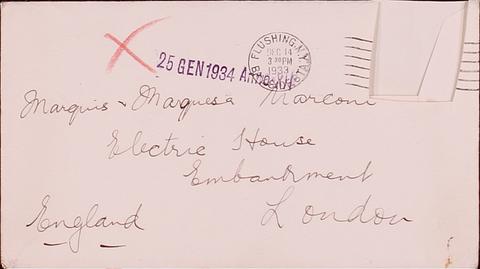 FLUSHING, N.Y.
DEC 14
3 30 PM
1933
25 GEN 1934
Marquis & Marquesa Marconi
Electric House
Embankment
London
England